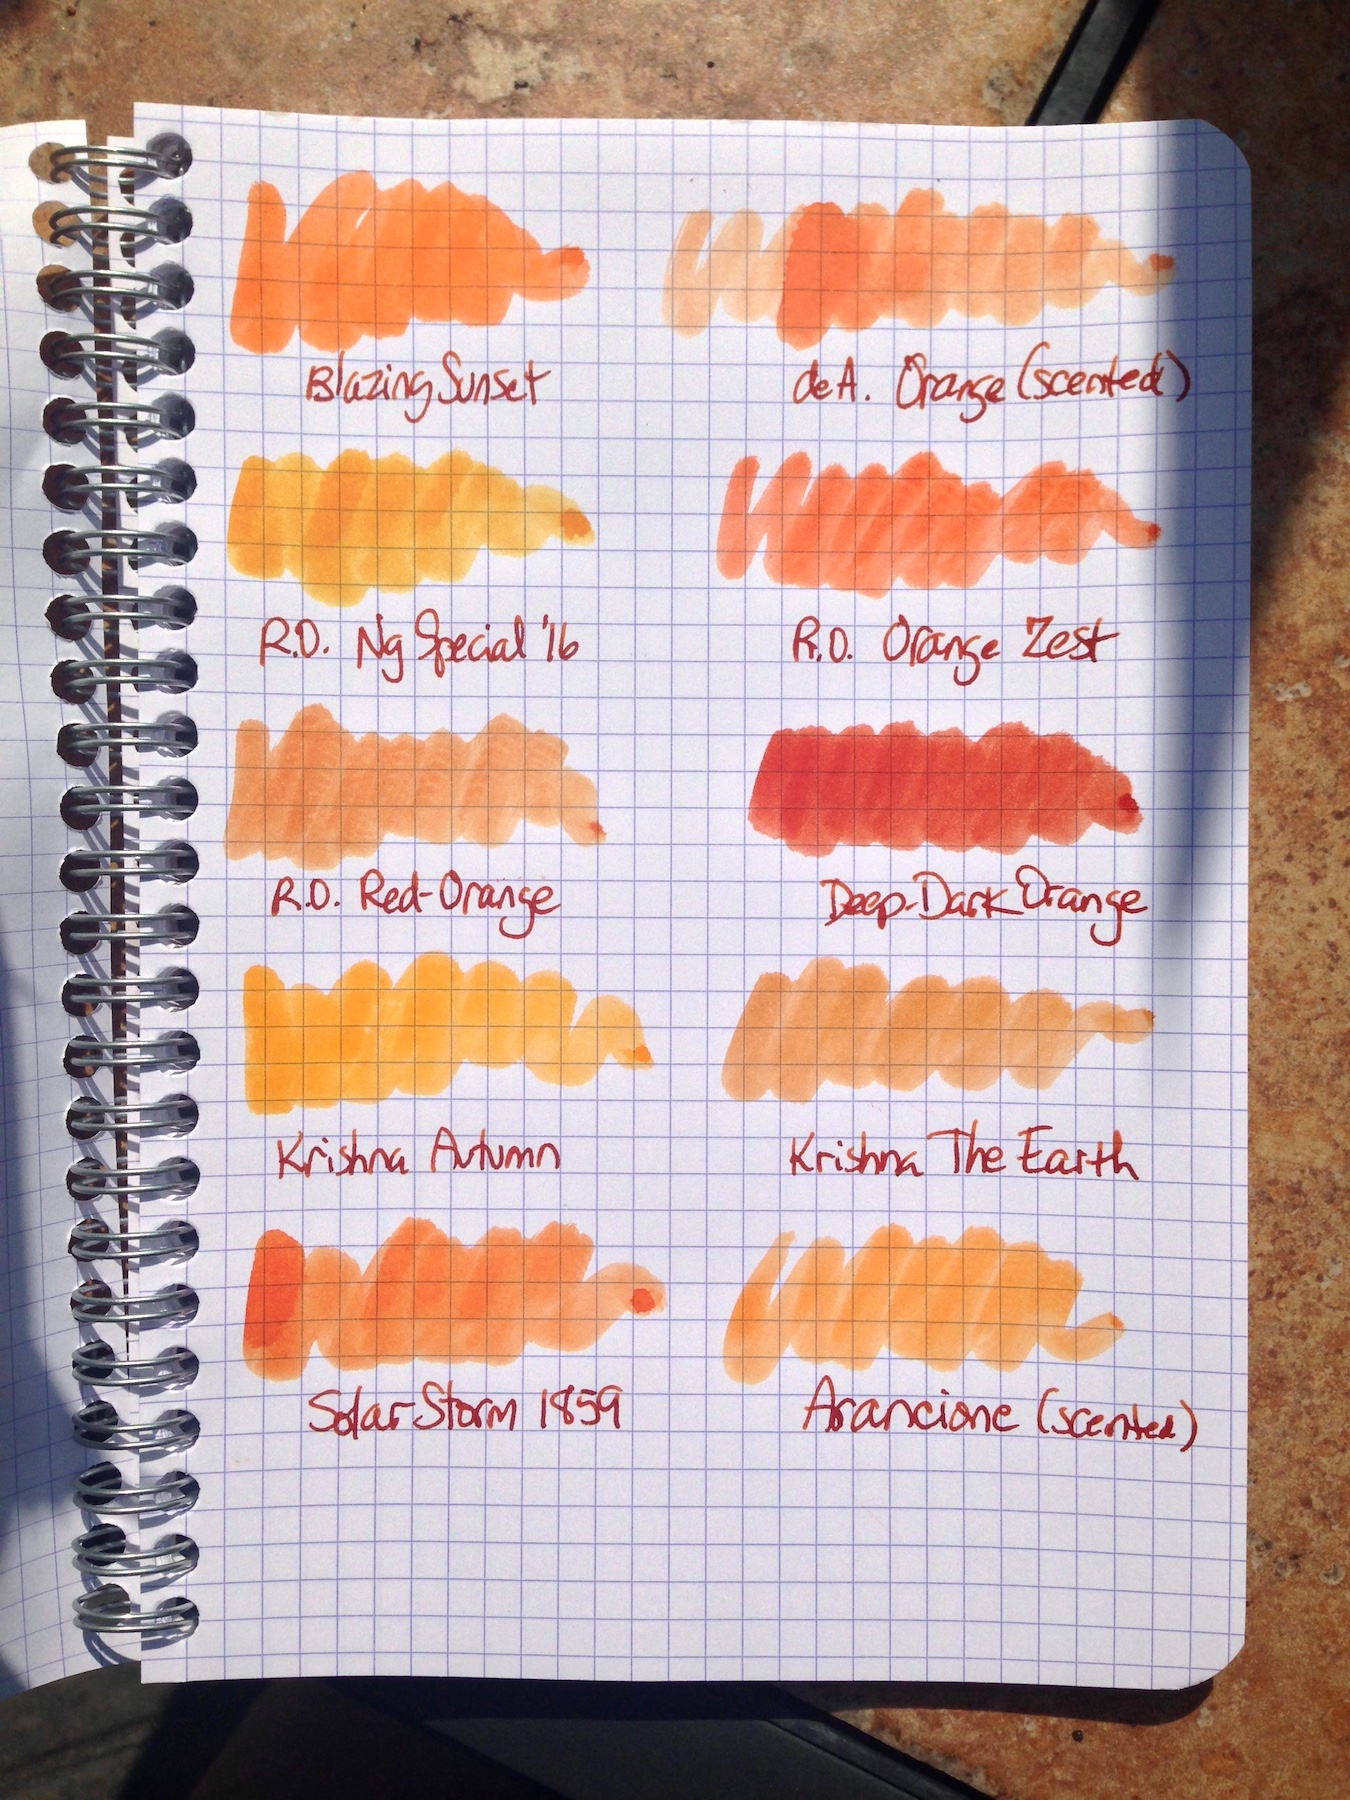 Blazing Sunset
de A. Orange (scented)
R.O. Ng Special '16
R.O. Orange Zest
R.O. Red-Orange
Deep-Dark Orange
Krishna Autumn
Krishna The Earth
Solar Storm 1859
Arancione (scented)